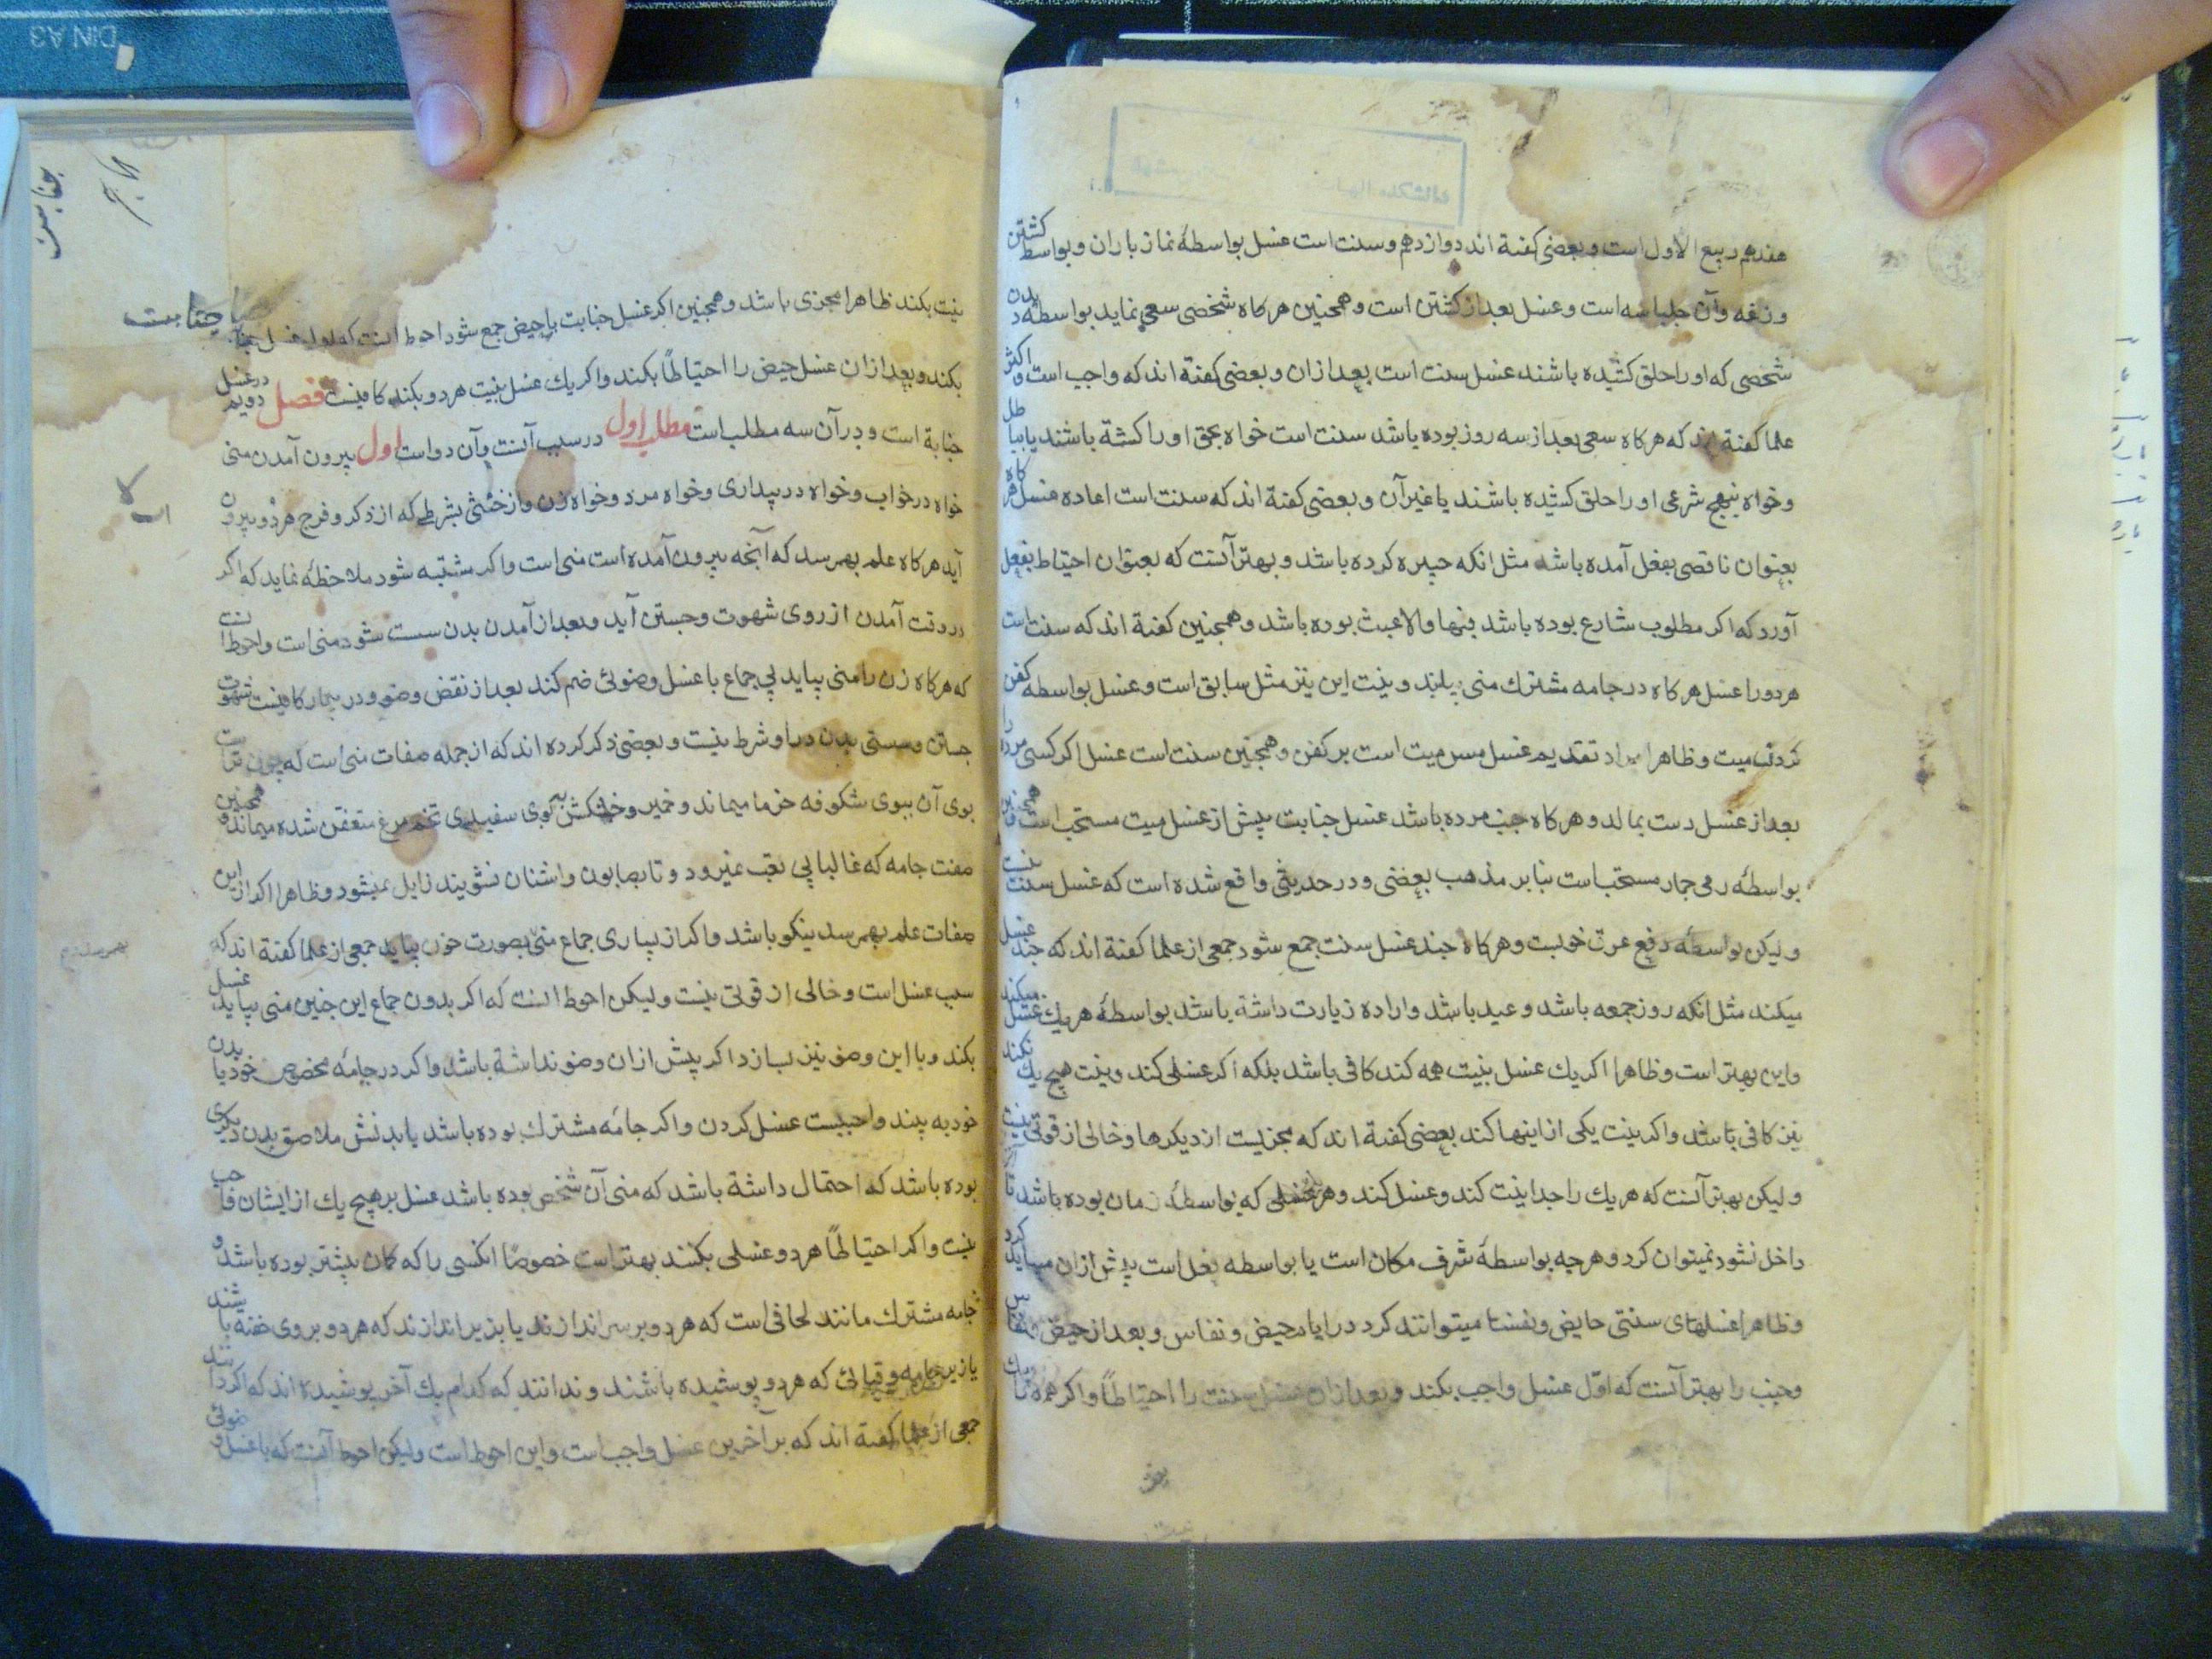 هفدهم ربیع الاول است و بعضی کفته اند دوازدهم و سنت است غسل بواسطهٔ نماز باران و بواسطهٔ کشتن
وزغه و آن چلپاسه است و غسل بعد از کشتن است و همچنین هرکاه شخصی سعی نماید بواسطهٔ دیدن
شخصی که او را حلق کشیده باشند غسل سنت است بعد ازان و بعضی کفته اند که واجب است و اکثر
علما کفته اند که هرکاه سعی بعد از سه روز بوده باشد سنت است خواه بحق او را کشته باشند یا بباطل
و خواه بنهج شرعی او را حلق کشیده باشند یا غیر آن و بعضی کفته اند که سنت است اعاده غسل هرکاه
بعنوان ناقصی بفعل آمده باشد مثل انکه جبیره کرده باشد و بهتر آنست که بعنوان احتیاط بفعل
آورد که اکر مطلوب شارع بوده باشد فبها والا عبث بوده باشد و همچنین کفته اند که سنت است
هر دو را غسل هرکاه در جامه مشترک منی بیابند و نیت این نیز مثل سابق است و غسل بواسطه کفن
کردن میت و ظاهرا مراد تقدیم غسل مس میت است بر کفن و همچنین سنت است غسل اکر کسی مرده را
بعد از غسل دست بمالد و هرکاه جنب مرده باشد غسل جنابت پیش از غسل میت مستحب است و همچنین
بواسطهٔ رمی جمار مستحب است بنابر مذهب بعضی و در حدیثی واقع شده است که غسل سنت نیست
ولیکن بواسطهٔ دفع عرق خوبست و هرکاه چند غسل سنت جمع شود جمعی از علما کفته اند که چند غسل
میکند مثل انکه روز جمعه باشد و عید باشد و اراده زیارت داشته باشد بواسطهٔ هر یک غسل میکند
و این بهتر است و ظاهرا اکر یک غسل بنیت همه کند کافی باشد بلکه اکر غسلی کند و نیت هیچ یک نکند
نیز کافی باشد و اکر نیت یکی از اینها کند بعضی کفته اند که مجزیست از دیکرها و خالی از قوتی نیست
ولیکن بهتر آنست که هر یک را جدا نیت کند و غسل کند و هر غسلی که بواسطهٔ زمان بوده باشد تا
داخل نشود نمیتوان کرد و هرچه بواسطهٔ شرف مکان است یا بواسطه فعل است پیش ازان میباید کرد
و ظاهرا غسلهای سنتی حایض و نفسا میتوانند کرد در ایام حیض و نفاس و بعد از حیض و نفاس
و جنب را بهتر آنست که اول غسل واجب بکند و بعد ازان غسل سنت را احتیاطاً و اکر همه را بیک
نیت بکند ظاهرا مجزی باشد و همچنین اکر غسل جنابت با حیض جمع شود احوط انست که اول غسل جنابت
بکند و بعد ازان غسل حیض را احتیاطاً بکند و اکر یک غسل بنیت هر دو بکند کافیست فصل دویم در غسل
جنابة است و در آن سه مطلب است مطلب اول در سبب آنست و آن دو است اول بیرون آمدن منی
خواه در خواب و خواه در بیداری و خواه مرد و خواه زن و از خنثی بشرطی که از ذکر و فرج هر دو بیرون
آید هرکاه علم بهمرسد که آنچه بیرون آمده است منی است و اکر مشتبه شود ملاحظهٔ نماید که اکر
در وقت آمدن از روی شهوت و جستن آید و بعد از آمدن بدن سست شود منی است و احوط انست
که هرکاه زن را منی بیاید بی جماع با غسل وضوئی ضم کند بعد از نقض وضو و در بیمار کافیست شهوت
جستن و سستی بدن در او شرط نیست و بعضی ذکر کرده اند که از جمله صفات منی است که
بوی آن ببوی شکوفه خرما میماند و خمیر و خشکش ببوی سفیدی تخم مرغ متعفن شده میماند و همچنین
صفت جامه که غالبا بی تعب نمیرود و تا بصابون و اشنان نشویند زایل نمیشود و ظاهرا اکر از این
صفات علم بهمرسد نیکو باشد و اکر از بسیاری جماع منی بصورت خون بیاید جمعی از علما کفته اند که
سبب غسل است و خالی از قوتی نیست ولیکن احوط انست که اکر بدون جماع این چنین منی بیاید غسل
بکند و با این وضو نیز بسازد اکر پیش ازان وضو نداشته باشد و اکر در جامهٔ مخصوص خود یا بدن
خود به بیند واجبست غسل کردن و اکر جامهٔ مشترک بوده باشد یا بدنش ملاصق بدن دیکری
بوده باشد که احتمال داشته باشد که منی آن شخص بوده باشد غسل بر هیچ یک از ایشان واجب
نیست و اکر احتیاطاً هر دو غسلی بکنند بهتر است خصوصا انکسی را که کمان بیشتر بوده باشد و
جامه مشترک مانند لحافی است که هر دو بر سر اندازند یا بزیر اندازند که هر دو بر روی خفته باشند
یا زیر جامه و قبائی که هر دو پوشیده باشند و ندانند که کدام یک آخر پوشیده اند که اکر دانند
جمعی از علما کفته اند که بر آخرین غسل واجب است و این احوط است ولیکن احوط آنست که با غسل وضوئی
جنابت